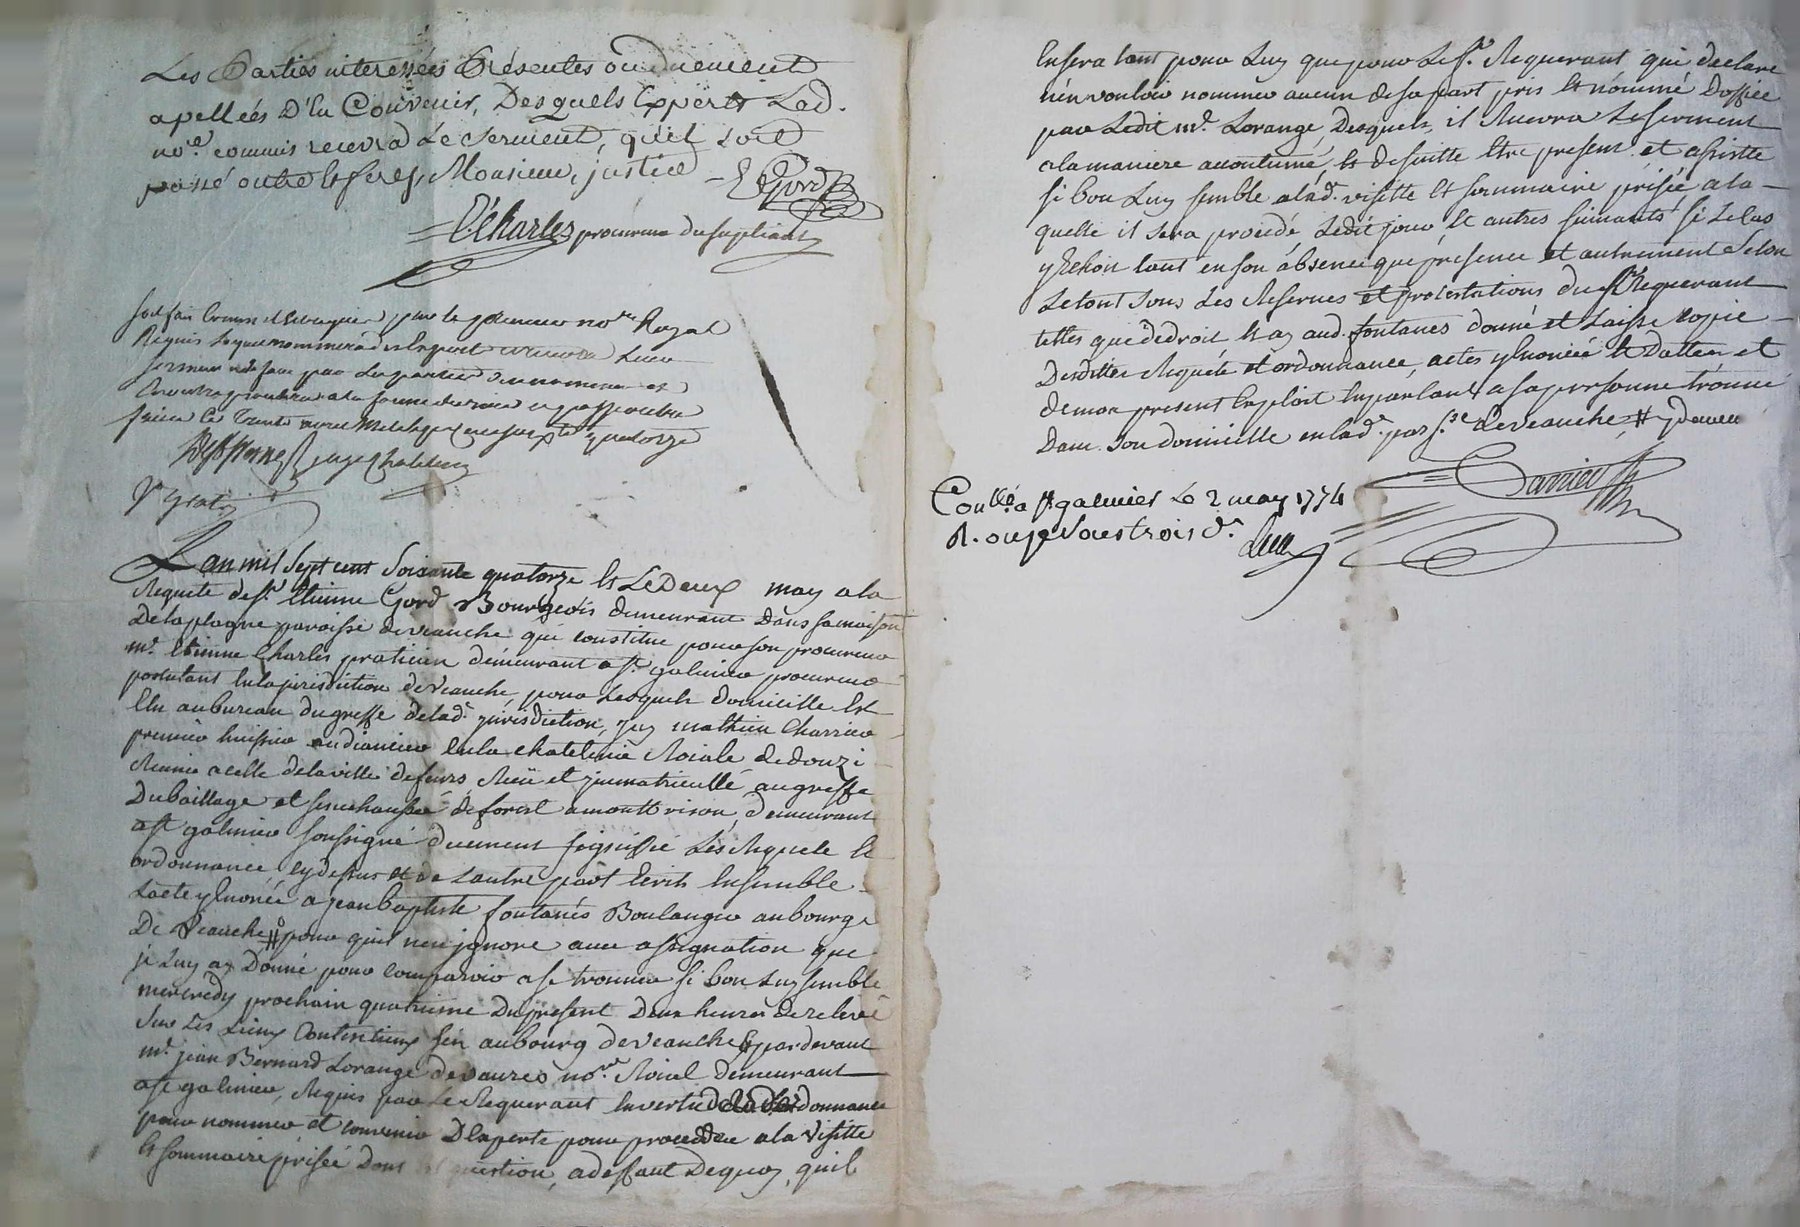 Les Parties interessées Présentes ou duement
apellées D'En Convenir, Desquels Experts Lad.
no.re commis recevra Le serment, qu'il soit
passé outre Et ferez, Monsieur, justice E Gord
E. Charles procureur du supliant
Soit fait comme il est requis par le premier no.re Royal
Requis lequel nommera des experts recevra Leur
serment
faict ce trente avril mil sept cent soixante quatorze
juge chatelain
L'an mil Sept cent Soixante quatorze Et Le Deux may a la
Requete de S.r Etienne Gord Bourgeois demeurant Dans sa maison
De la plagne paroisse de veauche qui constitue pour son procureur
m.e Etienne Charles praticien demeurant a S.t galmier procureur
postulant En la jurisdiction de Veauche, pour Lesquels domicille Est
Elu au bureau du greffe de lad.e jurisdiction, Je mathieu Charrier
premier huissier audiancier En la chatelenie Roiale de donzi
Reunie a celle de la ville de feurs Reçu et jmmatriculle au greffe
Du baillage et senechaussée de forest a montbrison, demeurant
a S.t galmier soussigné duement signiffié Les Requete Et
ordonnance cy dessus et de L'autre part Ecrits Ensemble
L'acte y Enoncé a jean baptiste fontanés Boulanger au bourg
De Veauche # pour qu'il n'en jgnore avec assignation que
je Luy ay Donné pour comparoir a se trouver si bon Luy semble
mercredy prochain quatrieme Du present Deux heures de relevé
Sur Les Lieux Contentieux sis au bourg de veauche Et par devant
m.e jean Bernard Lorange de vaures no.re Roial demeurant
a S.t galmier, Requis par Le Requerant En vertu de lad. ordonnance
pour nommer et convenir D'experts pour proceder a la visitte
Et sommaire prisée dont question, a deffaut De quoy, qu'il
En sera tant pour Luy que pour Le S.r Requerant qui declare
n'en vouloir nommer aucun de sa part pris Et nommé D'office
par Ledit m.e Lorange, Desquels, il Recevra Le serment
a la maniere accoutumé, Et de suitte Etre present et assister
si bon Luy semble a lad.e visitte Et sommaire prisée, a la
quelle il sera procedé Ledit jour Et autres suivants si Le Cas
y Echoit tant en son absence que presence et autrement Selon
Le tout sous Les Reserves et protestations du S.r Requerant
telles que de droit Et ay aud. fontanes donné et Laissé copie
Desdittes Requete et ordonnance, actes y Enoncée Et Datter et
de mon present Exploit En parlant a sa personne trouvé
Dans Son domicille en lad.e par.sse de veauche #
Charrier
Con.llé a S.t galmier Le 2 may 1774
R. onze sous trois d.s